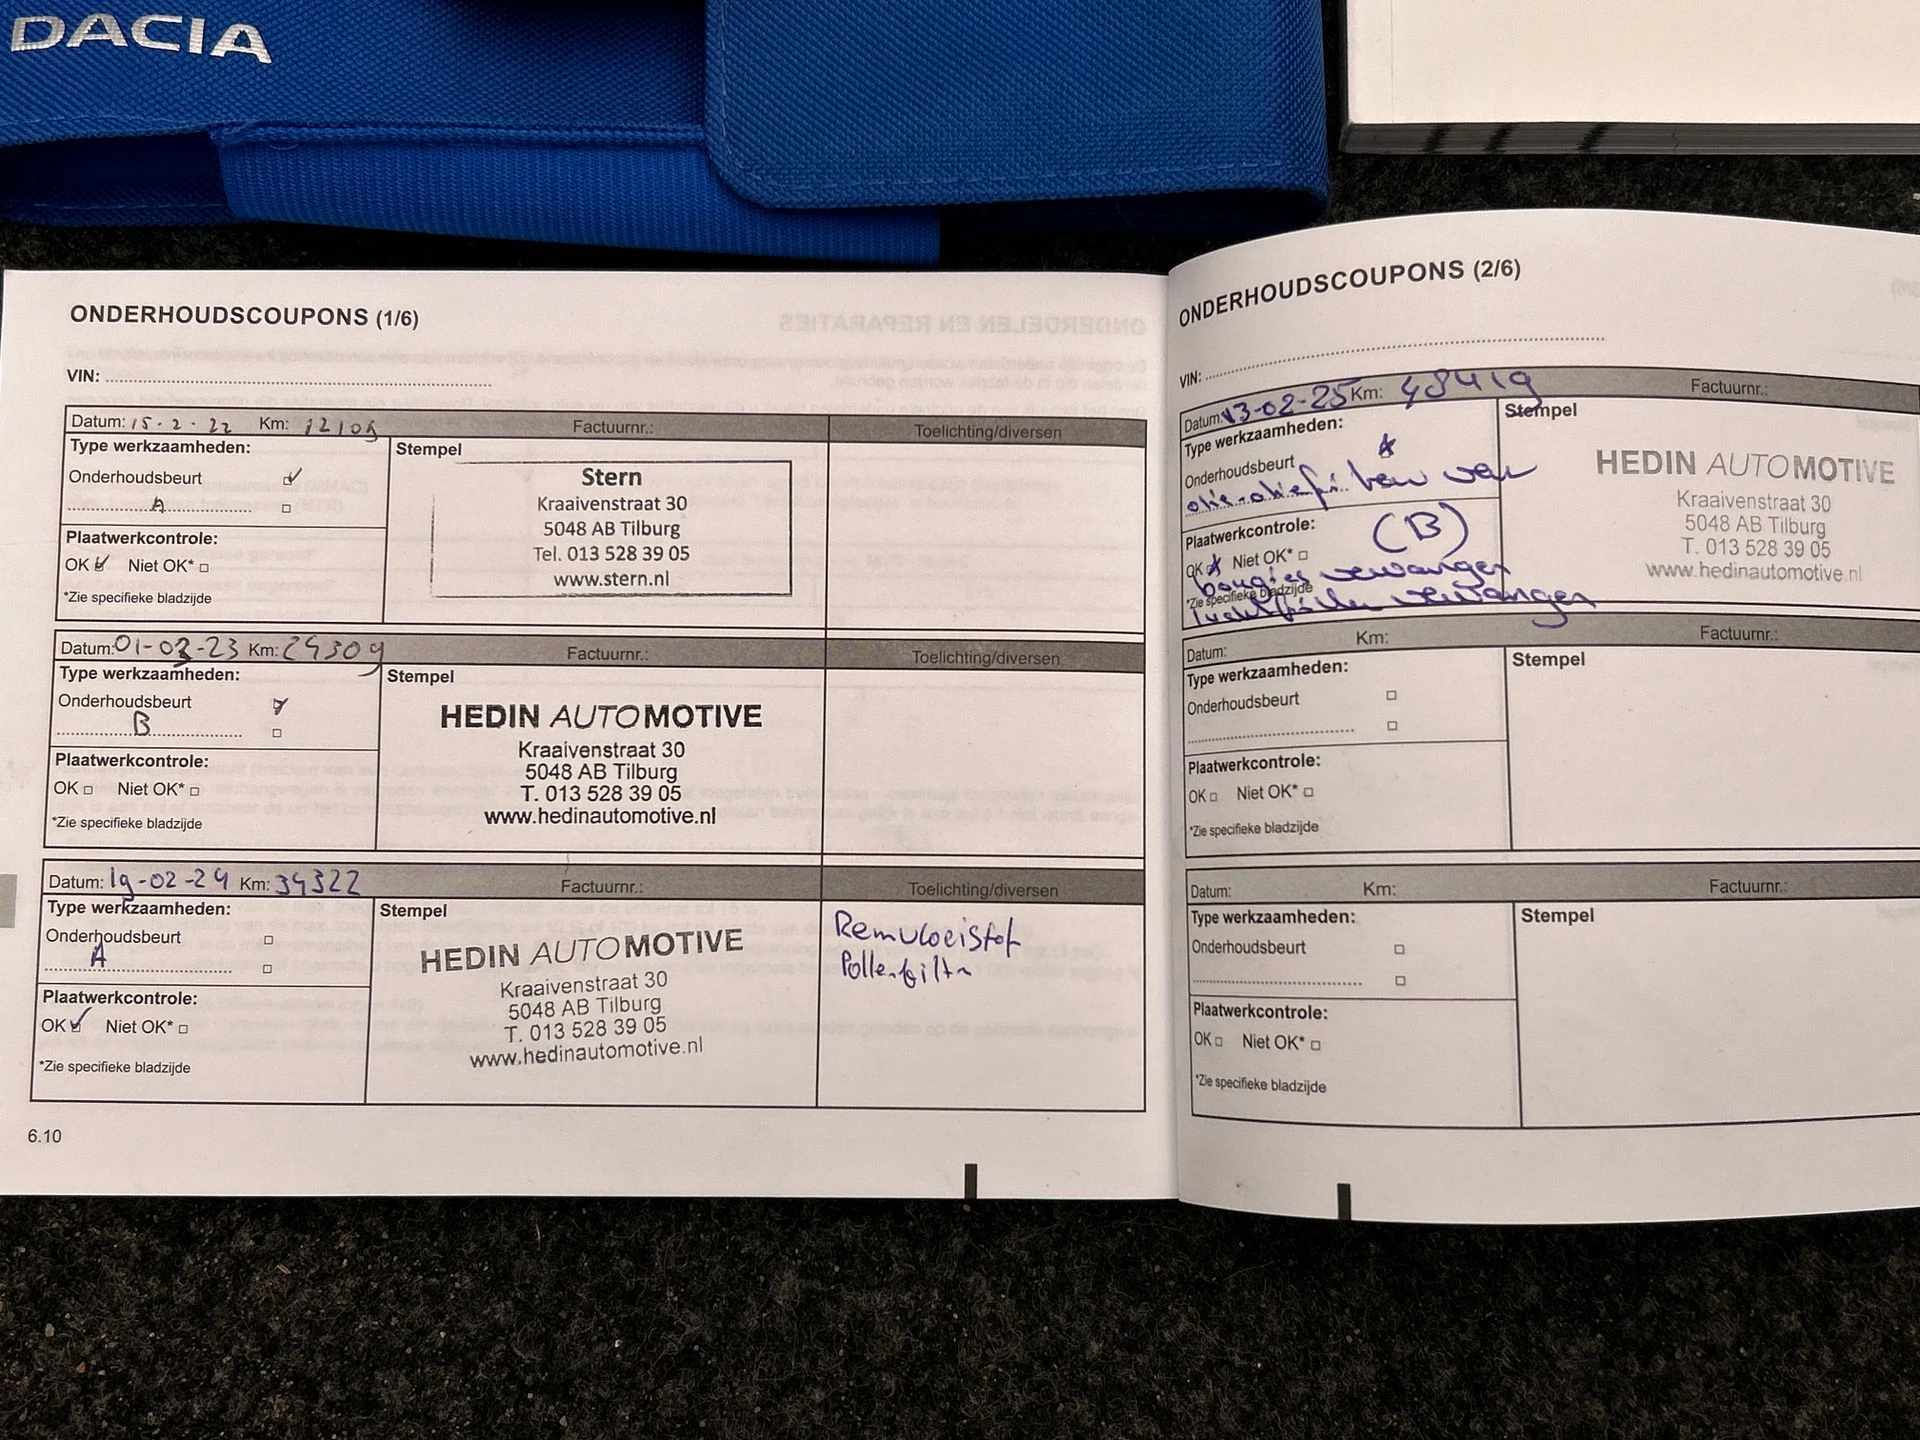 DACIA
ONDERHOUDSCOUPONS (1/6)
VIN:
Datum: 15-2-22 Km: 12109 Factuurnr.: Toelichting/diversen
Type werkzaamheden:
Stempel
Onderhoudsbeurt
A
Plaatwerkcontrole:
OK Niet OK*
*Zie specifieke bladzijde
Stern
Kraaivenstraat 30
5048 AB Tilburg
Tel. 013 528 39 05
www.stern.nl
Datum: 01-03-23 Km: 24309 Factuurnr.: Toelichting/diversen
Type werkzaamheden:
Stempel
Onderhoudsbeurt
B
Plaatwerkcontrole:
OK Niet OK*
*Zie specifieke bladzijde
HEDIN AUTOMOTIVE
Kraaivenstraat 30
5048 AB Tilburg
T. 013 528 39 05
www.hedinautomotive.nl
Datum: 19-02-24 Km: 34322 Factuurnr.: Toelichting/diversen
Type werkzaamheden:
Stempel
Onderhoudsbeurt
A
Plaatwerkcontrole:
OK Niet OK*
*Zie specifieke bladzijde
HEDIN AUTOMOTIVE
Kraaivenstraat 30
5048 AB Tilburg
T. 013 528 39 05
www.hedinautomotive.nl
Remvloeistof
Pollenfilter
6.10
ONDERHOUDSCOUPONS (2/6)
VIN:
Datum: 13-02-25 Km: 48419 Factuurnr.:
Type werkzaamheden:
Stempel
Onderhoudsbeurt
Plaatwerkcontrole:
(B)
OK Niet OK*
bougies vervangen
*Zie specifieke bladzijde
vervangen
HEDIN AUTOMOTIVE
Kraaivenstraat 30
5048 AB Tilburg
T. 013 528 39 05
www.hedinautomotive.nl
Datum: Km: Factuurnr.:
Type werkzaamheden:
Stempel
Onderhoudsbeurt
Plaatwerkcontrole:
OK Niet OK*
*Zie specifieke bladzijde
Datum: Km: Factuurnr.:
Type werkzaamheden:
Stempel
Onderhoudsbeurt
Plaatwerkcontrole:
OK Niet OK*
*Zie specifieke bladzijde